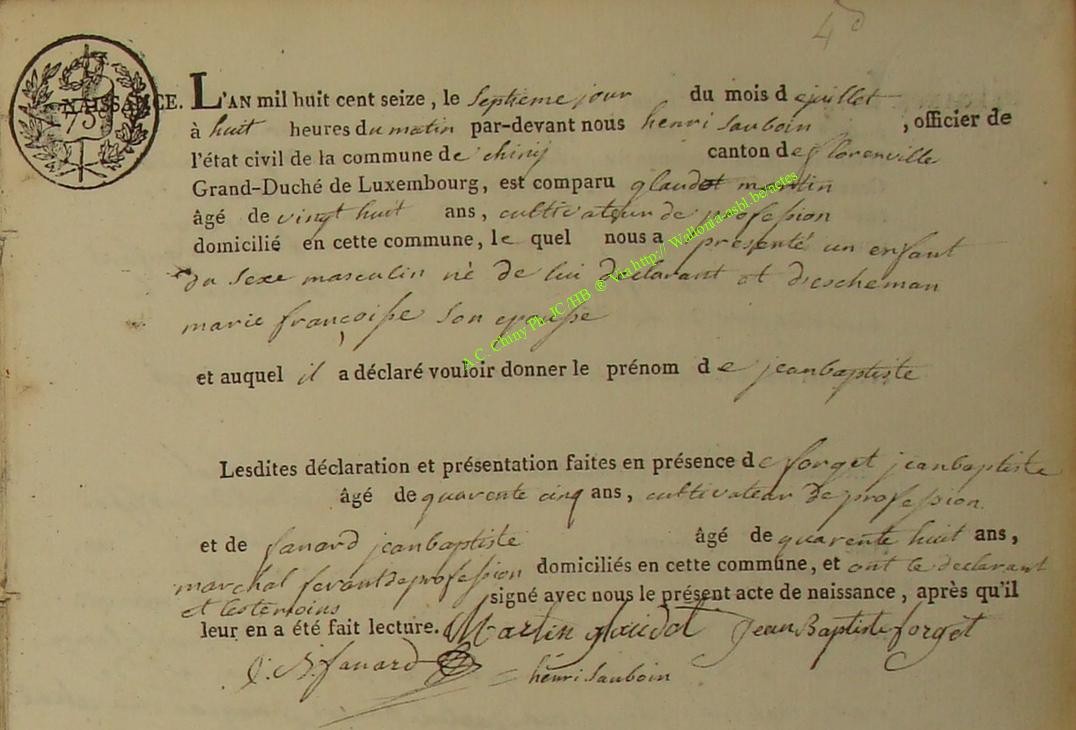 4d
NAISSANCE. L'AN mil huit cent seize, le Septieme jour du mois de juillet
75
à huit heures du matin par-devant nous henri Sauboin, officier de
l'état civil de la commune de chiny canton de florenville
Grand-Duché de Luxembourg, est comparu glaudot martin
âgé de vingt huit ans, cultivateur de profession
domicilié en cette commune, le quel nous a presenté un enfant
du Sexe masculin né de lui declarant et d'escheman
marie françoise Son epouse
et auquel il a déclaré vouloir donner le prénom de jeanbaptiste
Lesdites déclaration et présentation faites en présence de forget jeanbaptiste
âgé de quarente cinq ans, cultivateur de profession
et de fanard jeanbaptiste âgé de quarente huit ans,
marchal ferant de profession domiciliés en cette commune, et ont le declarant
et les temoins signé avec nous le présent acte de naissance, après qu'il
leur en a été fait lecture. Martin glaudot Jean Baptiste forget
J. B. fanard henri Sauboin
A.C. Chiny Ph. JC /HB ® Via http:// Wallonia-asbl.be/actes